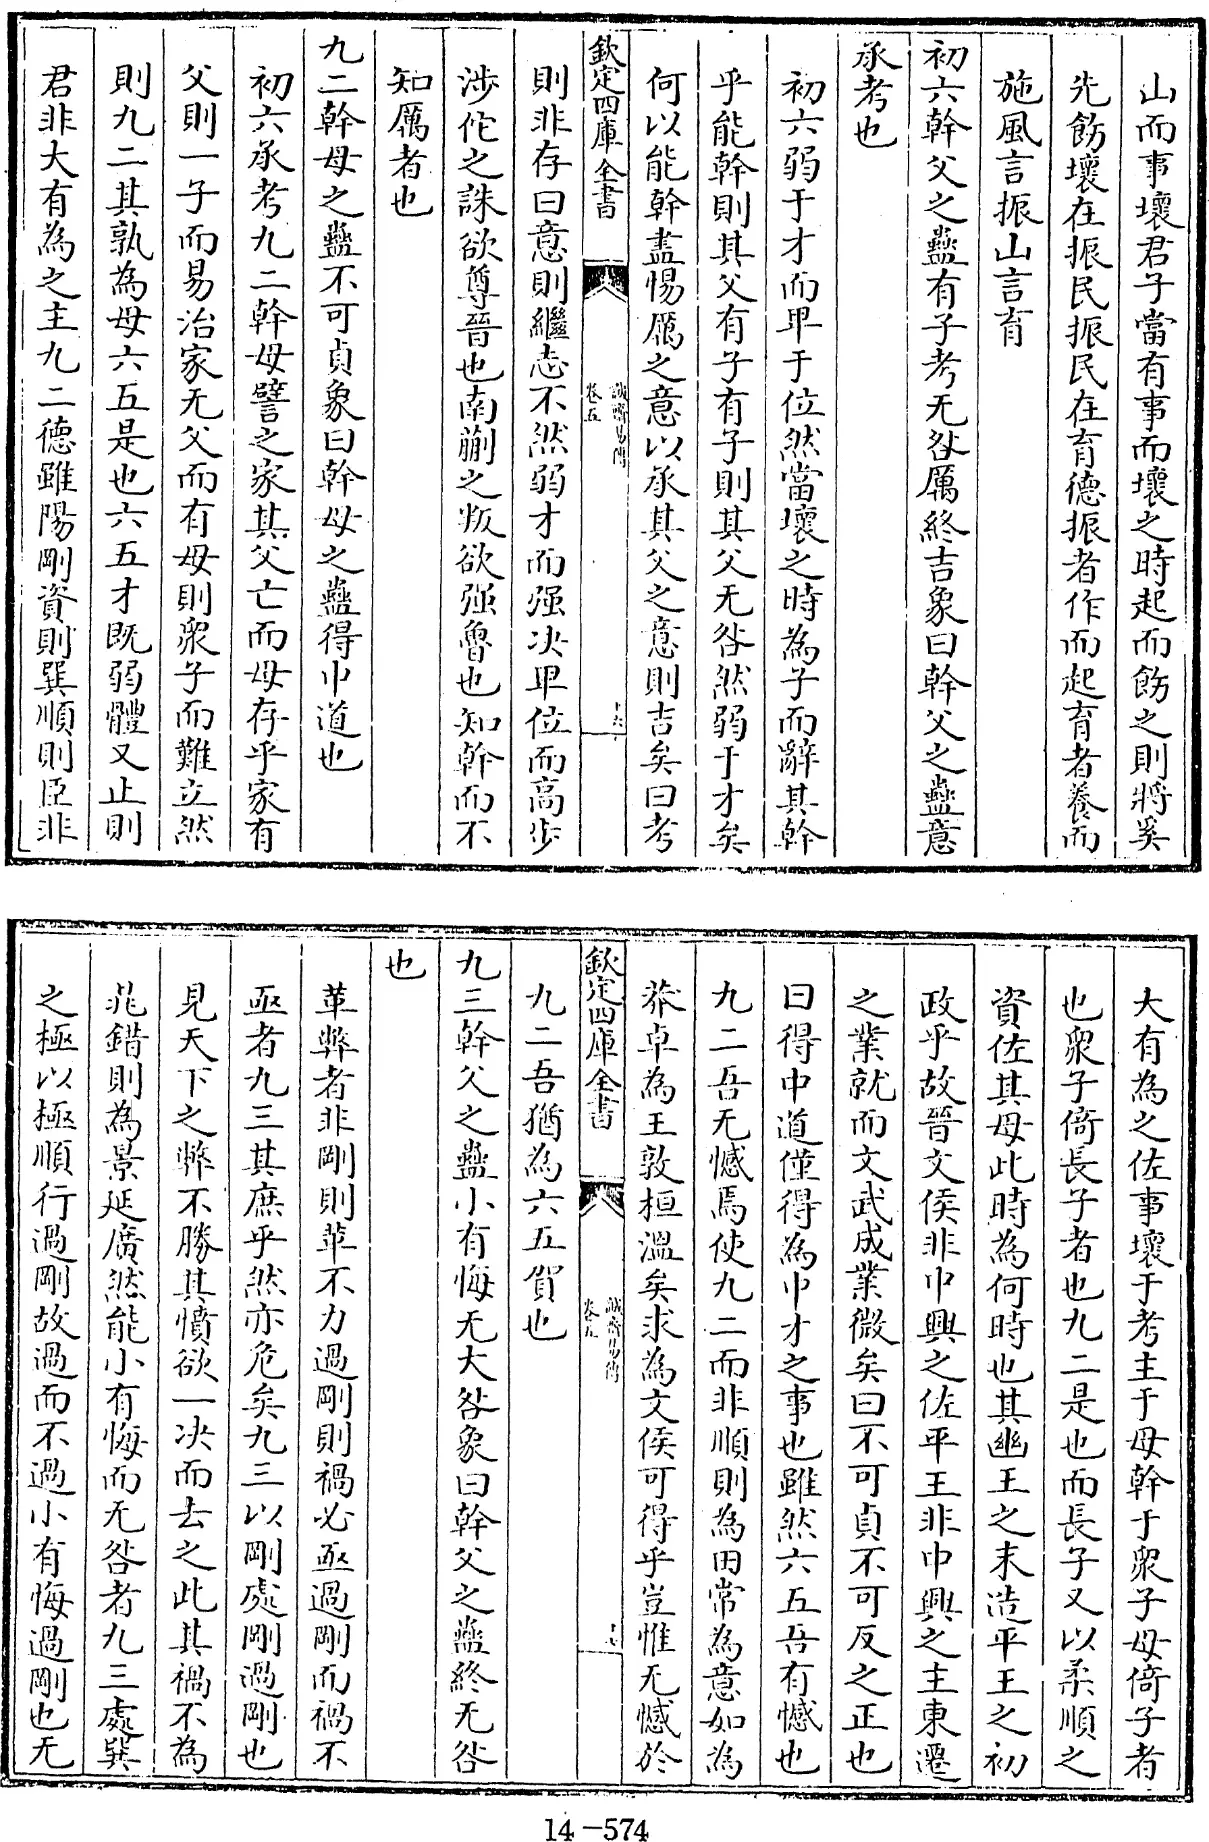 山而事壞君子當有事而壞之時起而飭之則將奚
先飭壞在振民振民在育德振者作而起育者養而
施風言振山言育
初六幹父之蠱有子考无咎厲終吉象曰幹父之蠱意
承考也
初六弱于才而卑于位然當壞之時為子而辭其幹
乎能幹則其父有子有子則其父无咎然弱于才矣
何以能幹盍惕厲之意以承其父之意則吉矣曰考
欽定四庫全書
誠齋易傳
卷五
十六
則非存曰意則繼志不然弱才而强决卑位而高步
涉佗之誅欲尊晉也南蒯之叛欲强魯也知幹而不
知厲者也
九二幹母之蠱不可貞象曰幹母之蠱得中道也
初六承考九二幹母譬之家其父亡而母存乎家有
父則一子而易治家无父而有母則衆子而難立然
則九二其孰為母六五是也六五才既弱體又止則
君非大有為之主九二德雖陽剛資則巽順則臣非
大有為之佐事壞于考主于母幹于衆子母倚子者
也衆子倚長子者也九二是也而長子又以柔順之
資佐其母此時為何時也其幽王之末造平王之初
政乎故晉文侯非中興之佐平王非中興之主東遷
之業就而文武成業微矣曰不可貞不可反之正也
曰得中道僅得為中才之事也雖然六五吾有憾也
九二吾无憾焉使九二而非順則為田常為意如為
莽卓為王敦桓溫矣求為文侯可得乎豈惟无憾於
欽定四庫全書
誠齋易傳
卷五
十七
九二吾猶為六五賀也
九三幹父之蠱小有悔无大咎象曰幹父之蠱終无咎
也
革弊者非剛則革不力過剛則禍必亟過剛而禍不
亟者九三其庶乎然亦危矣九三以剛處剛過剛也
見天下之弊不勝其憤欲一决而去之此其禍不為
鼂錯則為景延廣然能小有悔而无咎者九三處巽
之極以極順行過剛故過而不過小有悔過剛也无
14-574